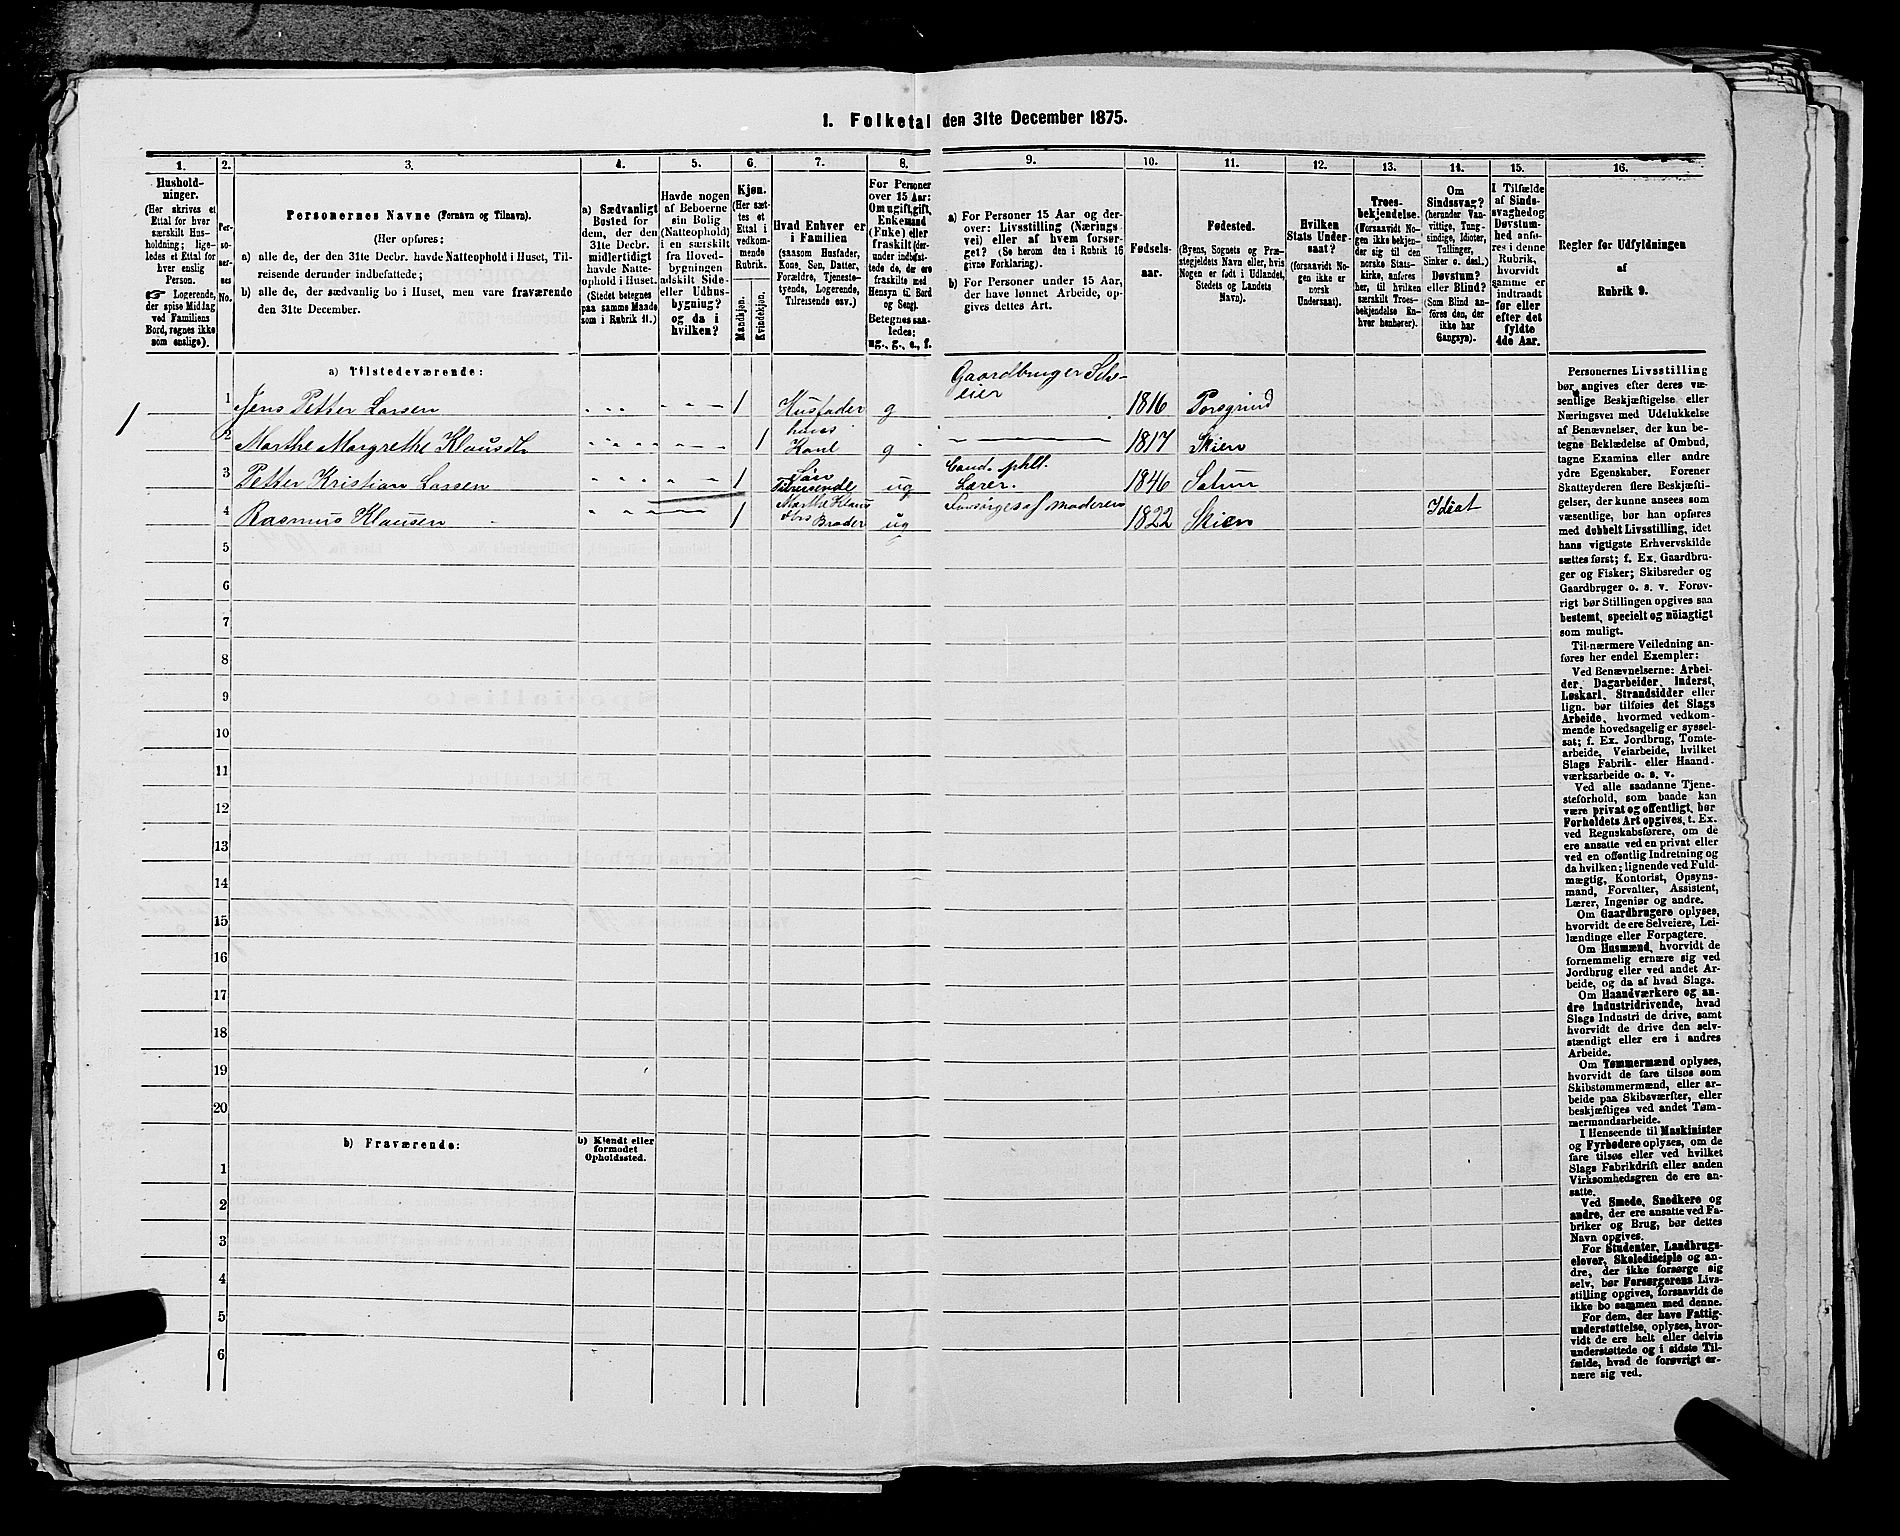 1. Folketal den 31te December 1875.
1. 2. 3. 4. 5. 6. 7. 8. 9. 10. 11. 12. 13. 14. 15. 16.
Hushold-
ninger.
(Her skrives et
Ettal for hver
særskilt Hus-
holdning; lige-
ledes et Ettal for
hver enslig
Person.
☞ Logerende,
der spise Middag
ved Familiens
Bord, regnes ikke
som enslige).
Per-
so-
ner-
nes
No.
Personernes Navne (Fornavn og Tilnavn).
(Her opføres:
a) alle de, der den 31te Decbr. havde Natteophold i Huset, Til-
reisende derunder indbefattede;
b) alle de, der sædvanlig bo i Huset, men vare fraværende
den 31te December.
a) Sædvanligt
Bosted for
dem, der den
31te Decbr.
midlertidigt
havde Natte-
ophold i Huset.
(Stedet betegnes
paa samme Maade
som i Rubrik 11.)
Havde nogen
af Beboerne
sin Bolig
(Natteophold)
i en særskilt
fra Hoved-
bygningen
adskilt Side-
eller Udhus-
bygning?
og da i
hvilken?
Kjøn.
(Her sæt-
tes et
Ettal i
vedkom-
mende
Rubrik.
Mandkjøn.
Kvindekjøn.
Hvad Enhver er
i Familien
(saasom Husfader,
Kone, Søn, Datter,
Forældre, Tjeneste-
tyende, Logerende,
Tilreisende osv.)
For Personer
over 15 Aar:
Om ugift, gift,
Enkemand
(Enke) eller
fraskilt (der-
under indbefat-
tede de, der ere
fraskilte med
Hensyn til Bord
og Seng).
Betegnes saa-
ledes:
ug., g., e., f.
a) For Personer 15 Aar og der-
over: Livsstilling (Nærings-
vei) eller af hvem forsør-
get? (Se herom den i Rubrik 16
givne Forklaring).
b) For Personer under 15 Aar,
der have lønnet Arbeide, op-
gives dettes Art.
Fødsels-
aar.
Fødested.
(Byens, Sognets og Præ-
stegjeldets Navn eller, hvis
Nogen er født i Udlandet,
Stedets og Landets
Navn).
Hvilken
Stats Under-
saat?
(forsaavidt No-
gen ikke er
norsk
Undersaat).
Troes-
bekjendelse.
(Forsaavidt No-
gen ikke bekjen-
der sig til den
norske Stats-
kirke, anføres
her, til hvilken
særskilt Troes-
bekjendelse En-
hver henhører).
Om
Sindssvag?
(herunder Van-
vittige, Tung-
sindige, Idioter,
Tullinger,
Sinker o. desl.)
Døvstum?
eller Blind?
(Som Blind an-
føres den, der
ikke har
Gangsyn).
I Tilfælde
af Sinds-
svaghed og
Døvstum-
hed anfø-
res i denne
Rubrik,
hvorvidt
samme er
indtraadt
før eller
efter det
fyldte
4de Aar.
Regler for Udfyldningen
af
Rubrik 9.
a) Tilstedeværende:
1 1 Jens Petter Larsen 1 Husfader g Gaardbruger Selv-
eier 1816 Porsgrund
2 Marthe Margrethe Klausdtr 1 hans
Kone g 1817 Skien
3 Petter Kristian Larsen 1 Søn
Tilreisende ug Cand. phil.
Lærer. 1846 Solum
4 Rasmus Klausen 1 Marthe Klaus
dtrs Broder ug Forsørges af moderen 1822 Skien Idiot
5
6
7
8
9
10
11
12
13
14
15
16
17
18
19
20
b) Fraværende:
b) Kjendt eller
formodet
Opholdssted.
1
2
3
4
5
6
Personernes Livsstilling
bør angives efter deres væ-
sentlige Beskjæftigelse eller
Næringsvei med Udelukkelse
af Benævnelser, der kun be-
tegne Beklædelse af Ombud,
tagne Examina eller andre
ydre Egenskaber. Forener
Skatteyderen flere Beskjæfti-
gelser, der kunne ansees som
væsentlige, bør han opføres
med dobbelt Livsstilling, idet
hans vigtigste Erhvervskilde
sættes først; f. Ex. Gaardbru-
ger og Fisker; Skibsreder og
Gaardbruger o. s. v. Forøv-
rigt bør Stillingen opgives saa
bestemt, specielt og nöiagtigt
som muligt.
Til nærmere Veiledning an-
føres her endel Exempler:
Ved Benævnelserne: Arbei-
der, Dagarbeider, Inderst,
Løskarl, Strandsidder eller
lign. bør tilføies det Slags
Arbeide, hvormed vedkom-
mende hovedsagelig er syssel-
sat; f. Ex. Jordbrug, Tomte-
arbeide, Veiarbeide, hvilket
Slags Fabrik- eller Haand-
værksarbeide o. s. v.
Ved alle saadanne Tjene-
steforhold, som baade kan
være privat og offentligt, bør
Forholdets Art opgives, t. Ex.
ved Regnskabsførere, om de
ere ansatte ved en privat eller
ved en offentlig Indretning og
da hvilken; lignende ved Fuld-
mægtig, Kontorist, Opsyns-
mand, Forvalter, Assistent,
Lærer, Ingeniør og andre.
Om Gaardbrugere oplyses,
hvorvidt de ere Selveiere, Lei-
lændinge eller Forpagtere.
Om Husmænd, hvorvidt de
fornemmelig ernære sig ved
Jordbrug eller ved andet Ar-
beide, og da af hvad Slags.
Om Haandværkere og an-
dre industridrivende, hvad
Slags Industri de drive, samt
hvorvidt de drive den selv-
stændigt eller ere i andres
Arbeide.
Om Tømmermænd oplyses,
hvorvidt de fare tilsøs som
Skibstømmermænd, eller ar-
beide paa Skibsværfter, eller
beskjæftiges ved andet Tøm-
mermandsarbeide.
I Henseende til Maskinister
og Fyrbødere oplyses, om de
fare tilsøs eller ved hvilket
Slags Fabrikdrift eller anden
Virksomhedsgren de ere an-
satte.
Ved Smede, Snedkere og
andre, der ere ansatte ved Fa-
briker og Brug, bør dettes
Navn opgives.
For Studenter, Landbrugs-
elever, Skoledisciple og an-
dre, der ikke forsørge sig
selv, bør Forsørgerens Livs-
stilling opgives, forsaavidt de
ikke bo sammen med denne.
For dem, der have Fattig-
understøttelse, oplyses, hvor-
vidt de ere helt eller delvis
understøttede og i sidste Til-
fælde, hvad de forøvrigt er-
nære sig ved.